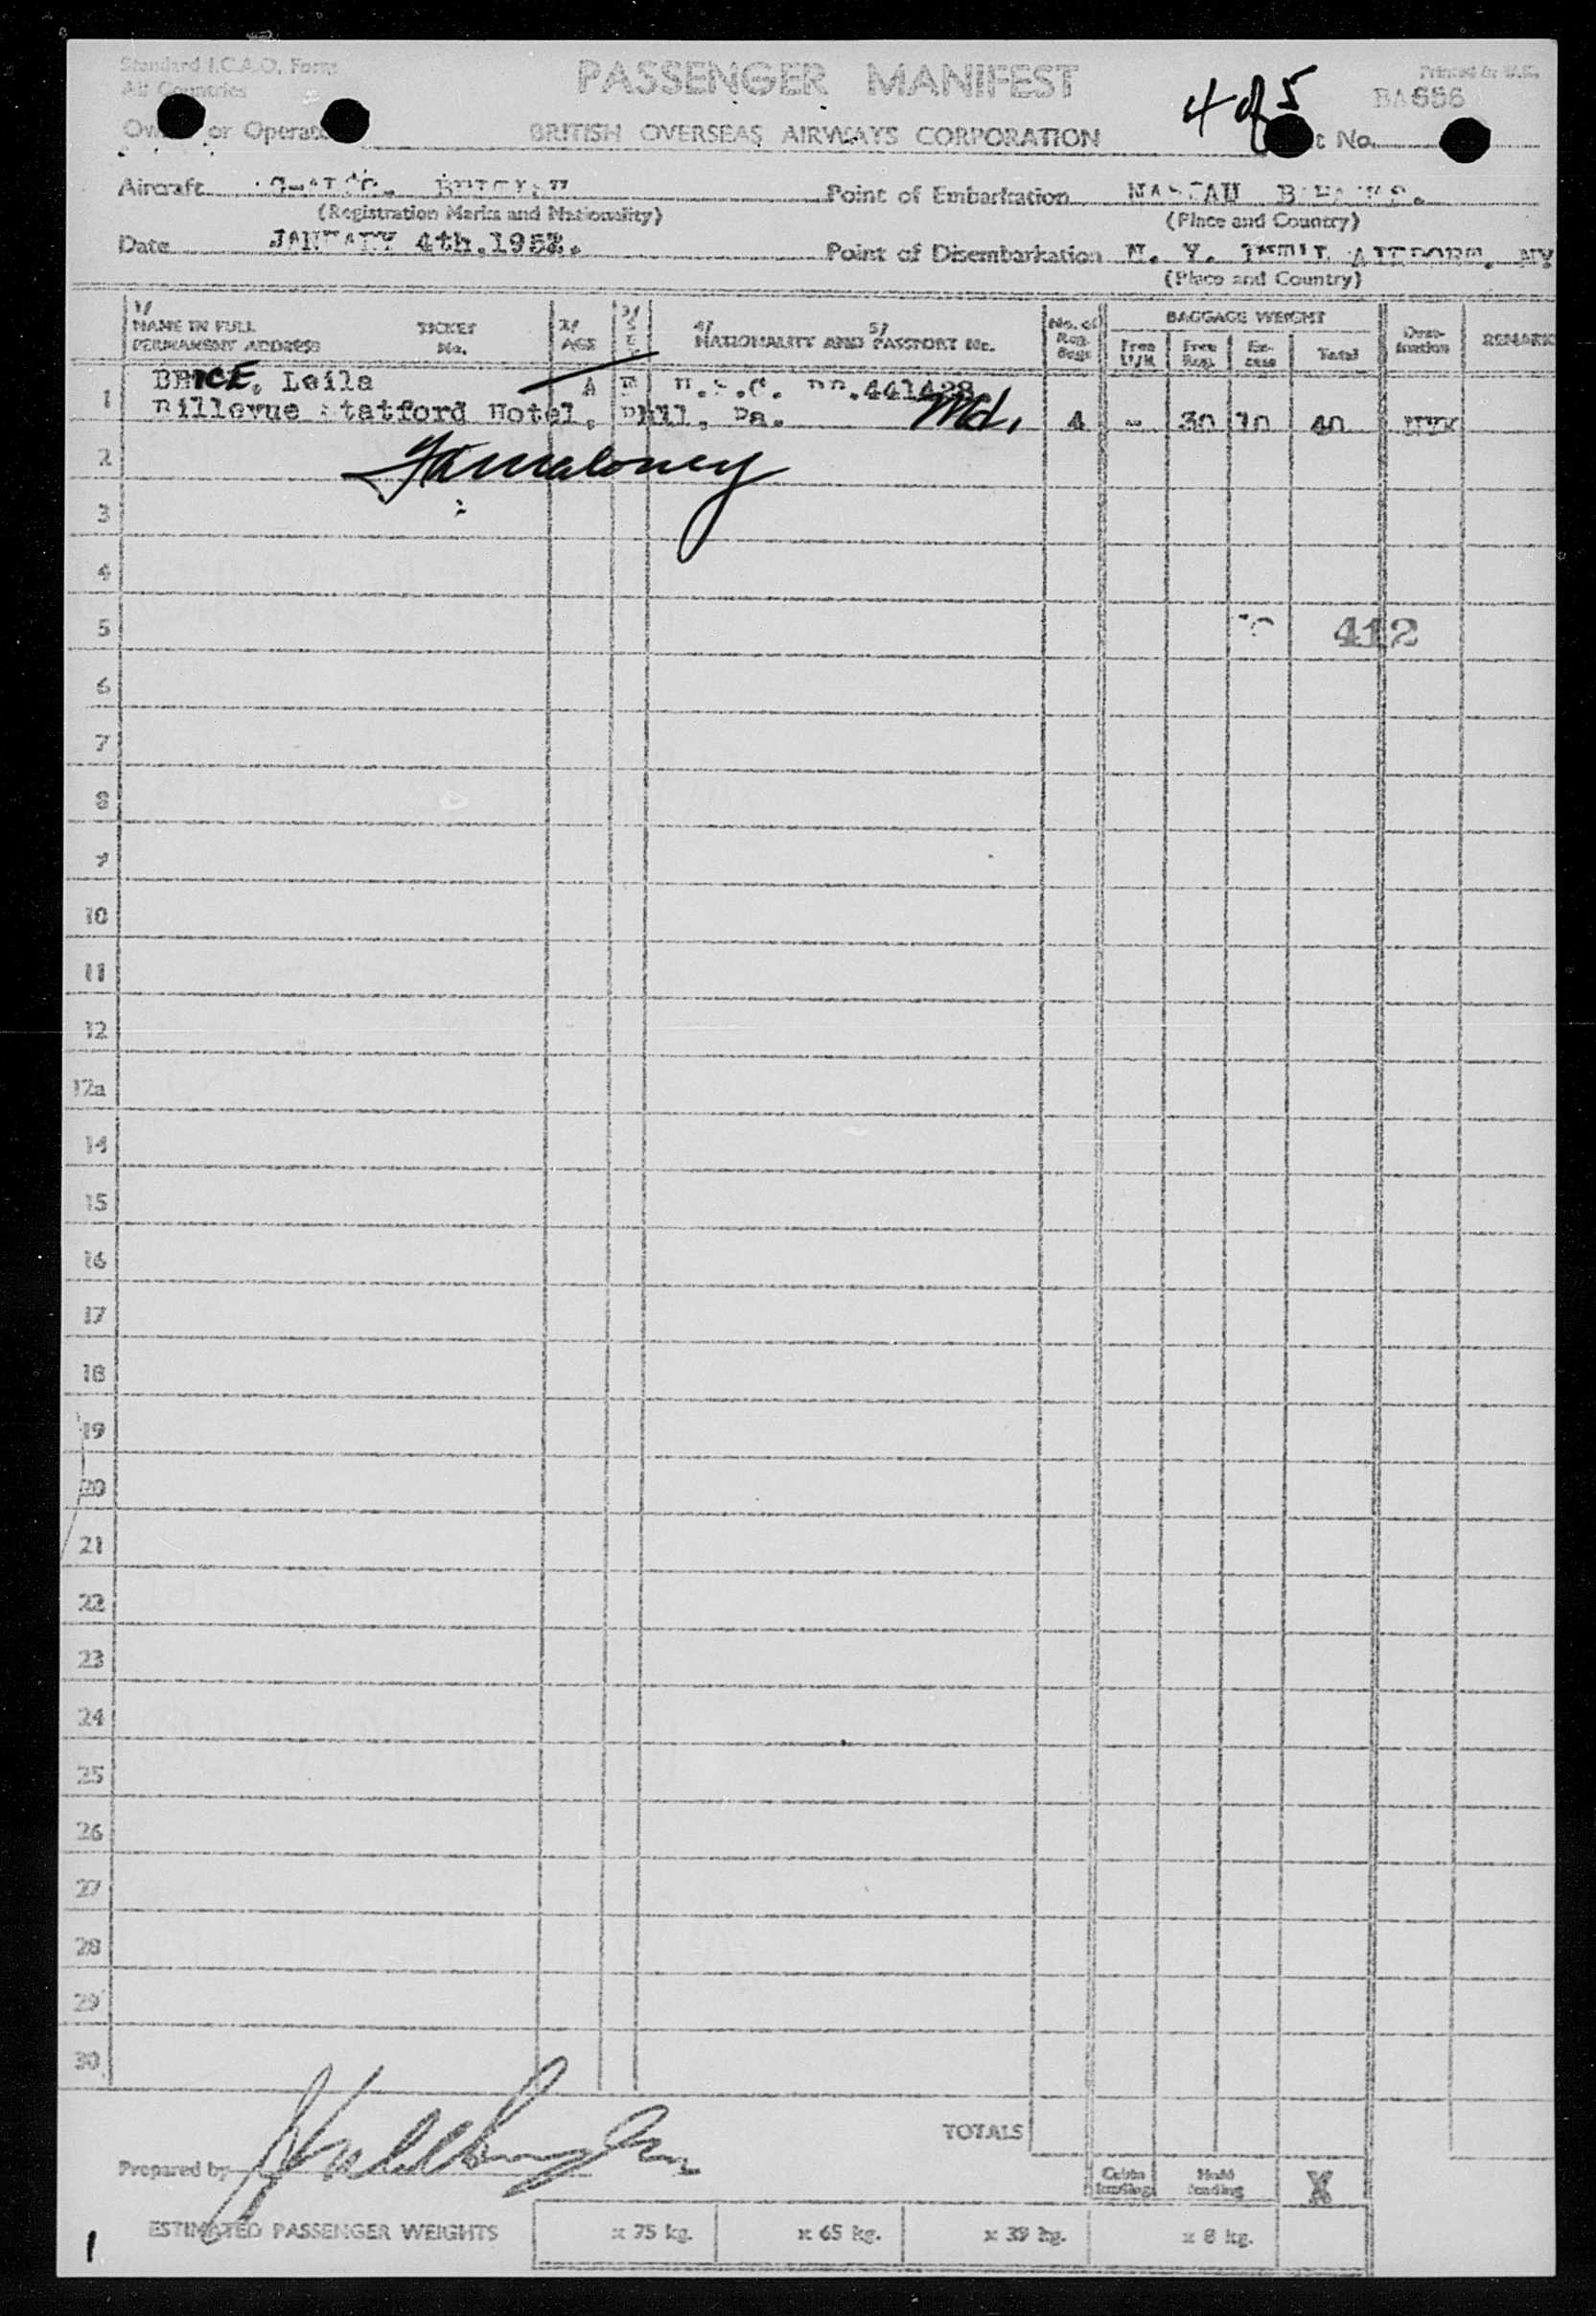 Standard I.C.A.O. Form
All Countries
PASSENGER MANIFEST
4 of 5
Printed in U.K.
BA
or Operator
BRITISH OVERSEAS AIRWAYS CORPORATION
No.
Aircraft
(Registration Marks and Nationality)
Point of Embarkation NASSAU BAHAMAS.
(Place and Country)
Date JANUARY 4th.1952.
Point of Disembarkation N. Y. AIRPORT, NY
(Place and Country)
1/ NAME IN FULL PERMANENT ADDRESS
TICKET No.
2/ AGE
3/ SEX
4/ 5/ NATIONALITY AND PASSPORT No.
No. of Reg. Bags
BAGGAGE WEIGHT
Free U/H
Free Reg.
Ex-cess
Total
Desti-nation
REMARK
1 BRICE, Leila A F U.S.C. PP.441428
Billevue Statford Hotel, Phil. Pa. Md. 4 - 30 10 40 NYK
2
3
4
5 412
6
7
8
9
10
11
12
12a
14
15
16
17
18
19
20
21
22
23
24
25
26
27
28
29
30
TOTALS
Prepared by
Cabin loading
Hold loading
X
ESTIMATED PASSENGER WEIGHTS
x 75 kg.
x 65 kg.
x 39 kg.
x 8 kg.
1